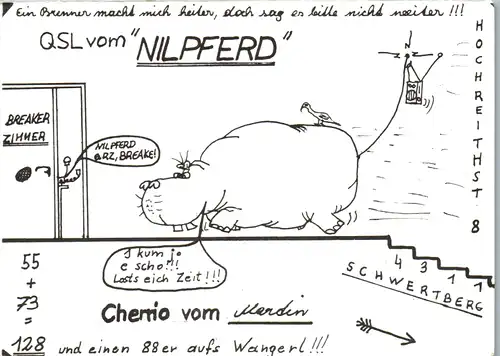 Ein Brenner macht mich heiter, doch sag es bitte nicht weiter!!!
QSL vom "NILPFERD"
HOCHREITHST. 8
N
BREAKER
ZIMMER
NILPFERD
QRZ, BREAKE!
I kum jo
e scho!!!
Losts eich Zeit!!!
4311
SCHWERTBERG
55
+
73
=
128
Cherrio vom Martin
und einen 88er aufs Wangerl!!!